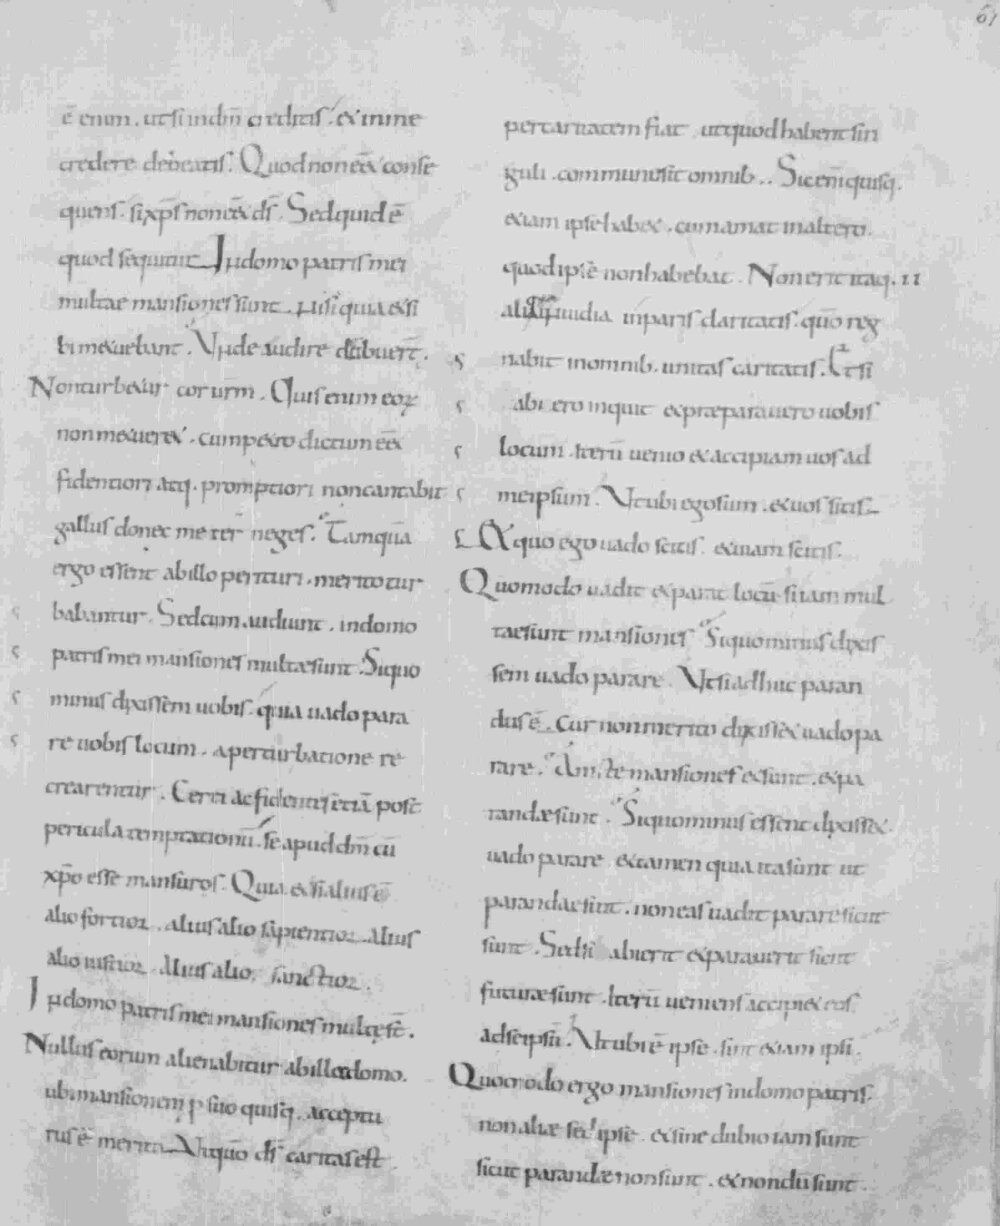 61
ē enim. ut si in dm̄ creditis. et in me
credere debeatis. Quod non eēt conse
quens. si xp̄s non eēt ds̄. Sed quid ē
quod sequitur In domo patris mei
multae mansiones sunt. nisi quia et si
bi metuebant. Unde audire debuert̄.
Non turbetur cor urm̄. Quis enim eoꝝ
non metueret. cum petro dictum eēt
fidentiori atq. promptiori non cantabit
gallus donec me ter neges. Tamquā
ergo essent ab illo perituri. merito tur
babantur. Sed cum audiunt. in domo
patris mei mansiones multae sunt. Si quo
minus dixissem uobis. quia uado para
re uobis locum. a perturbatione re
crearentur. Certi ac fidentes etiā post
pericula temptationū. se apud dm̄ cū
xp̄o esse mansuros. Quia etsi alius ē
alio fortior. alius alio sapientior. alius
alio iustior. Alius alio, sanctior.
In domo patris mei mansiones multę s̄.
Nullus eorum alienabitur ab illa domo.
ubi mansionem p suo quisq. accepturus
rus ē merito. Utquō ds̄ caritas est
per caritatem fiat. ut quod habent sin
guli. commune sit omnib.. Sic enim̄ quisq.
etiam ipse habet. cum amat in altero.
quod ipse non habebat. Non erit itaq.
aliq inuidia inparis claritatis. quō reg
nabit in omnib. unitas caritatis. Et si
abiero inquit et praeparauero uobis
locum. Iterū uenio et accipiam uos ad
me ipsum. Ut ubi ego sum. et uos sitis.
Et quo ego uado scitis. et uiam scitis.
Quomodo uadit et parat locū si iam mul
tae sunt mansiones Si quo minus dixis
sem uado parare. Ut si adhuc paran
dus ē. Cur non merito dixisset uado pa
rare. An iste mansiones et sunt. et pa
randae sunt. Si quo minus essent dixisset.
uado parare. et tamen quia ita sunt ut
parandae sint. non eas uadit parare sicut
sunt. Sed si abierit et parauerit sicut
futurae sunt. Iterū ueniens accipiet eos
ad se ipsū. Ut ubi ē ipse. sint etiam ipsi.
Quomodo ergo mansiones in domo patris.
non aliae sed ipse. et sine dubio iam sunt
sicut parandae non sunt. et nondū sunt